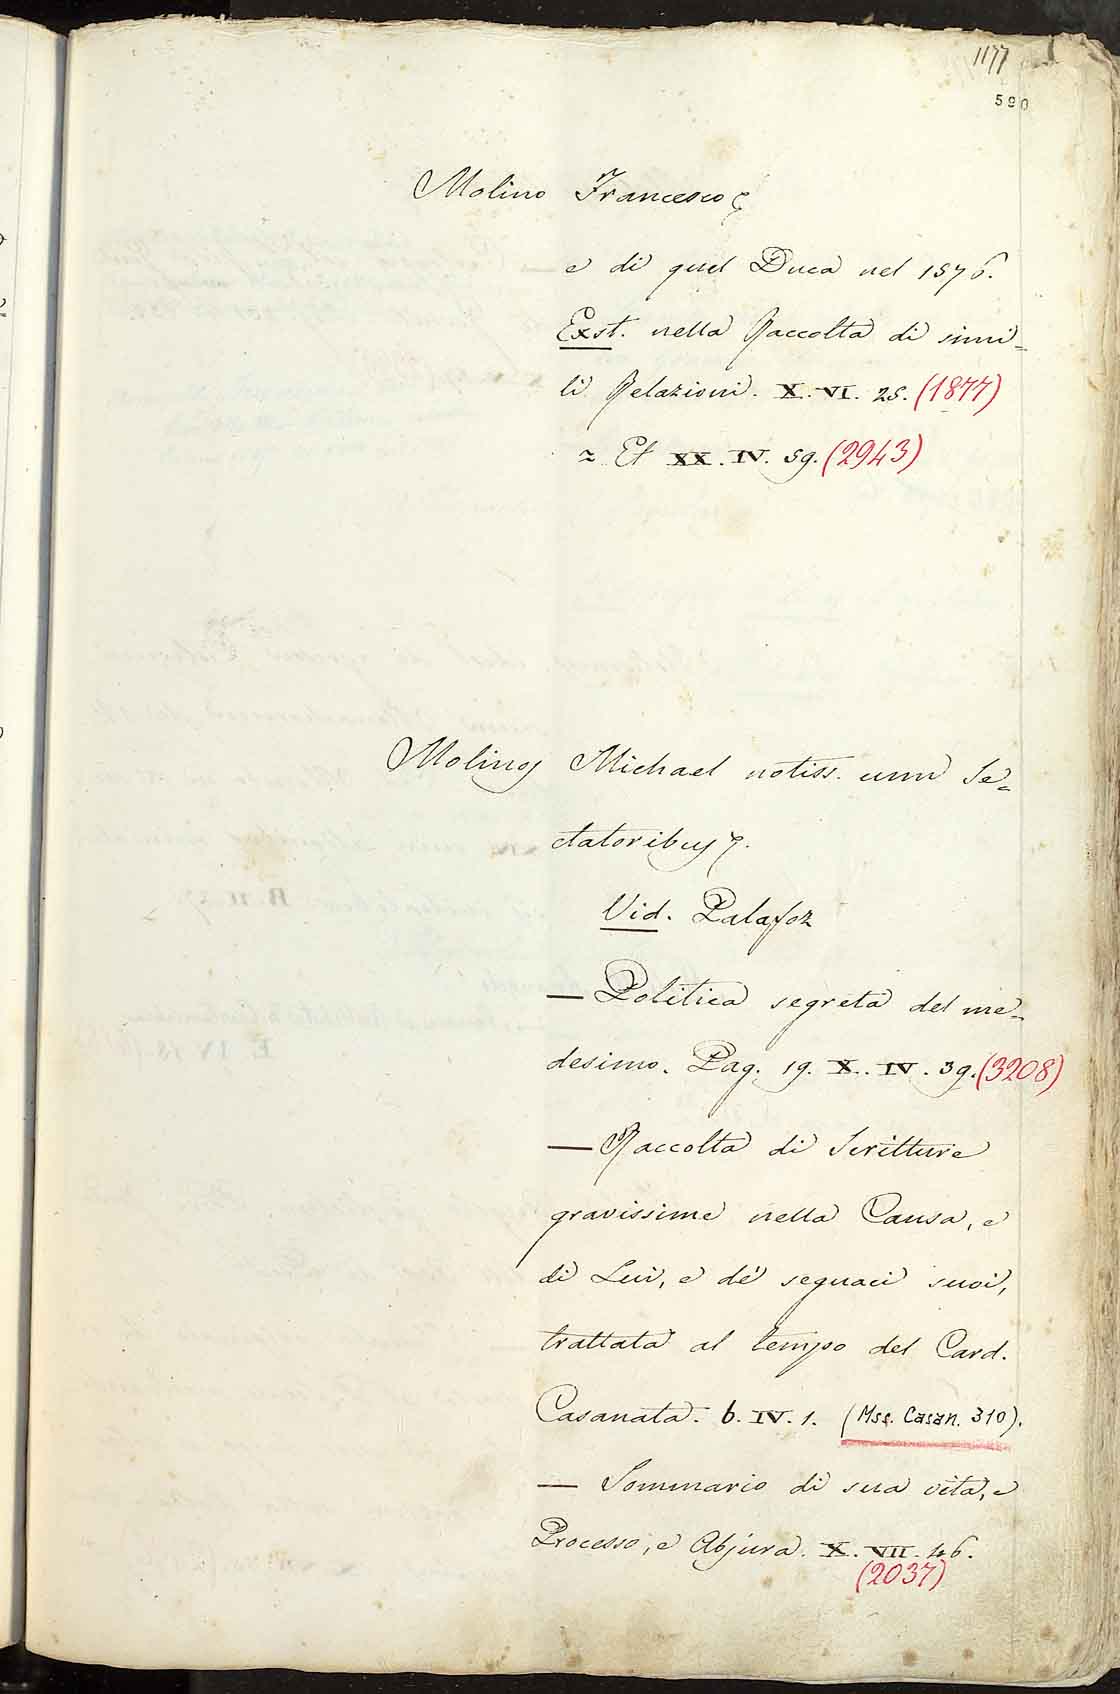 1177
590
Molino Francesco
e di quel Duca nel 1576.
Exst. nella Raccolta di simi=
li Relazioni. X. VI. 25. (1877)
= Et XX. IV. 59. (2943)
Molinos Michael notiss. cum Se=
ctatoribus.
Vid. Palafoz
— Politica segreta del me=
desimo. Pag. 19. X. IV. 39. (3208)
— Raccolta di Scritture
gravissime nella Causa, e
di Lui, e de' seguaci suoi,
trattata al tempo del Card.
Casanata. b. IV. 1. (Mss. Casan. 310).
— Sommario di sua vita, e
Processo, e Abjura. X. VII. 46.
(2037)